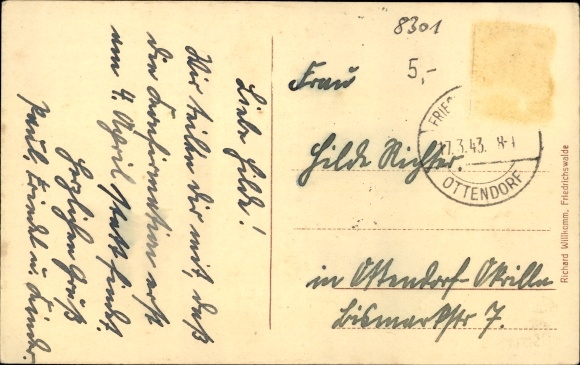 Liebe Hilde!
Wir teilen dir mit, daß
die Konfirmation erst
am 4. April stattfindet.
Herzlichen Gruß
Paul, Friedel u. Kinder.
8301
5,-
Frau
Hilde Richter.
in Ottendorf-Okrilla
Bismarkstr 7.
FRIE
17.3.43. 8-
OTTENDORF
Richard Willkomm, Friedrichswalde